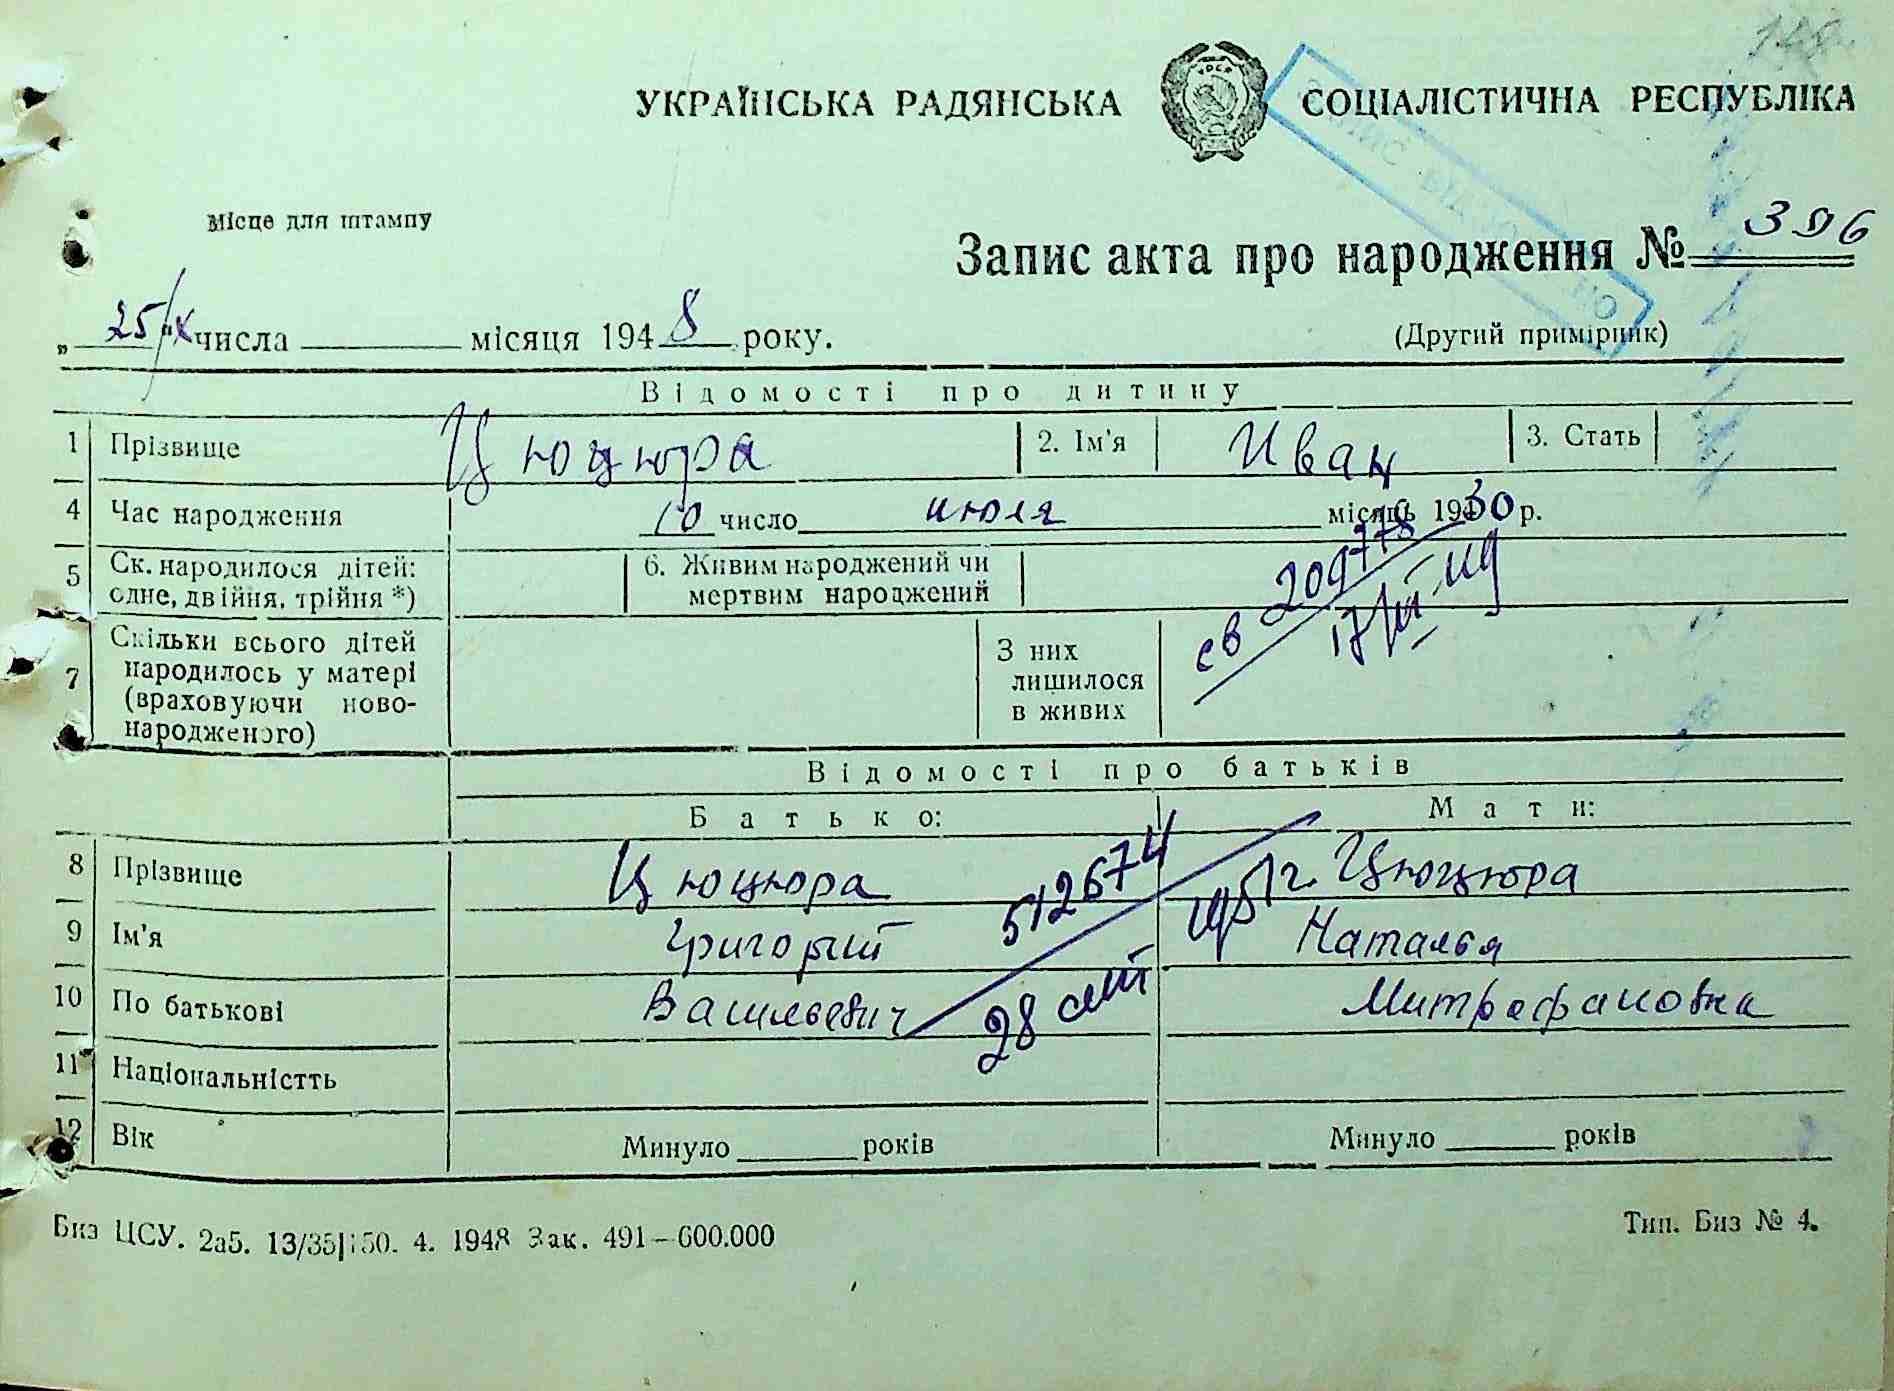 УКРАЇНСЬКА РАДЯНСЬКА СОЦІАЛІСТИЧНА РЕСПУБЛІКА
Місце для штампу
Запис акта про народження № 396
„ 25/X " числа місяця 1948 року.
(Другий примірник)
Відомості про дитину
1 Прізвище Цюцюра 2. Ім'я Иван 3. Стать
4 Час народження 10 число июля місяць 1930 р.
5 Ск. народилося дітей: одне, двійня, трійня *) 6. Живим народжений чи мертвим народжений
св 209778
17/III
7 Скільки всього дітей народилось у матері (враховуючи новонародженого) З них лишилося в живих
Відомості про батьків
Батько: Мати:
8 Прізвище Цюцюра Цюцюра
512674
9 Ім'я Григорий Наталья
10 По батькові Васильевич Митрофановна
28
11 Національністть
12 Вік Минуло років Минуло років
Биз ЦСУ. 2а5. 13/35 150. 4. 1948 Зак. 491–600.000
Тип. Биз № 4.